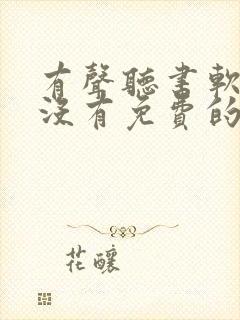 有聲聽書軟
沒有免費的
花釀